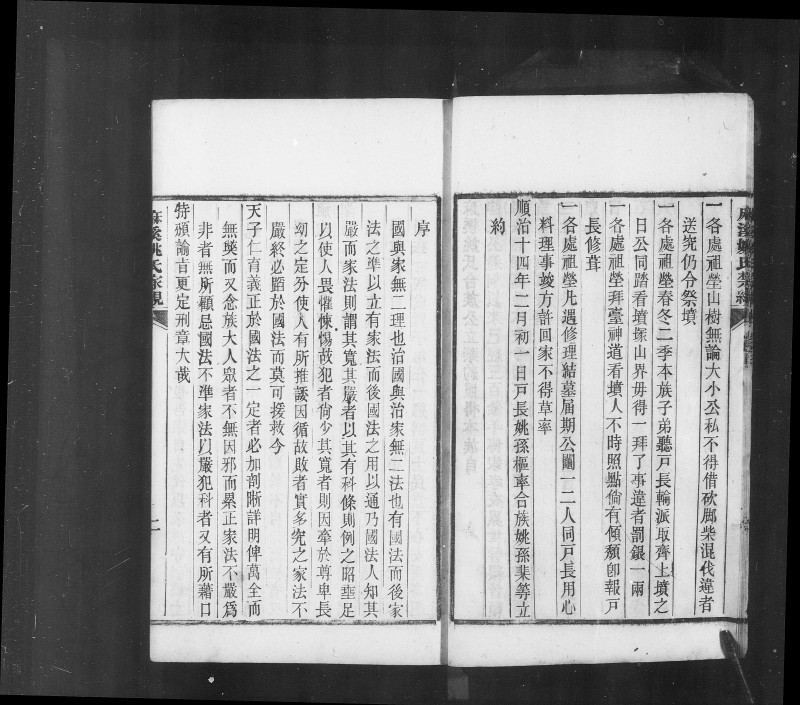 一各處祖塋山樹無論大小公私不得借砍脚柴混伐違者
送究仍令祭墳
一各處祖塋春冬二季本族子弟聽戸長輪派取齊上墳之
日公同踏看墳塚山界毋得一拜了事違者罰銀一兩
一各處祖塋拜臺神道看墳人不時照點倘有傾頽卽報戸
長修葺
一各處祖塋凡遇修理結墓届期公鬮一二人同戸長用心
料理事竣方許回家不得草率
順治十四年二月初一日戸長姚孫樞率合族姚孫棐等立
約
序
國與家無二理也治國與治家無二法也有國法而後家
法之準以立有家法而後國法之用以通乃國法人知其
嚴而家法則謂其寬其嚴者以其有科條則例之昭垂足
以使人畏懼悚惕故犯者尙少其寬者則因牽於尊卑長
幼之定分使人有所推諉因循故敗者實多究之家法不
嚴終必蹈於國法而莫可援救今
天子仁育義正於國法之一定者必加剖晰詳明俾萬全而
無獘而又念族大人衆者不無因邪而累正家法不嚴爲
非者無所顧忌國法不準家法以嚴犯科者又有所藉口
特頒諭旨更定刑章大哉
麻溪姚氏家規
二